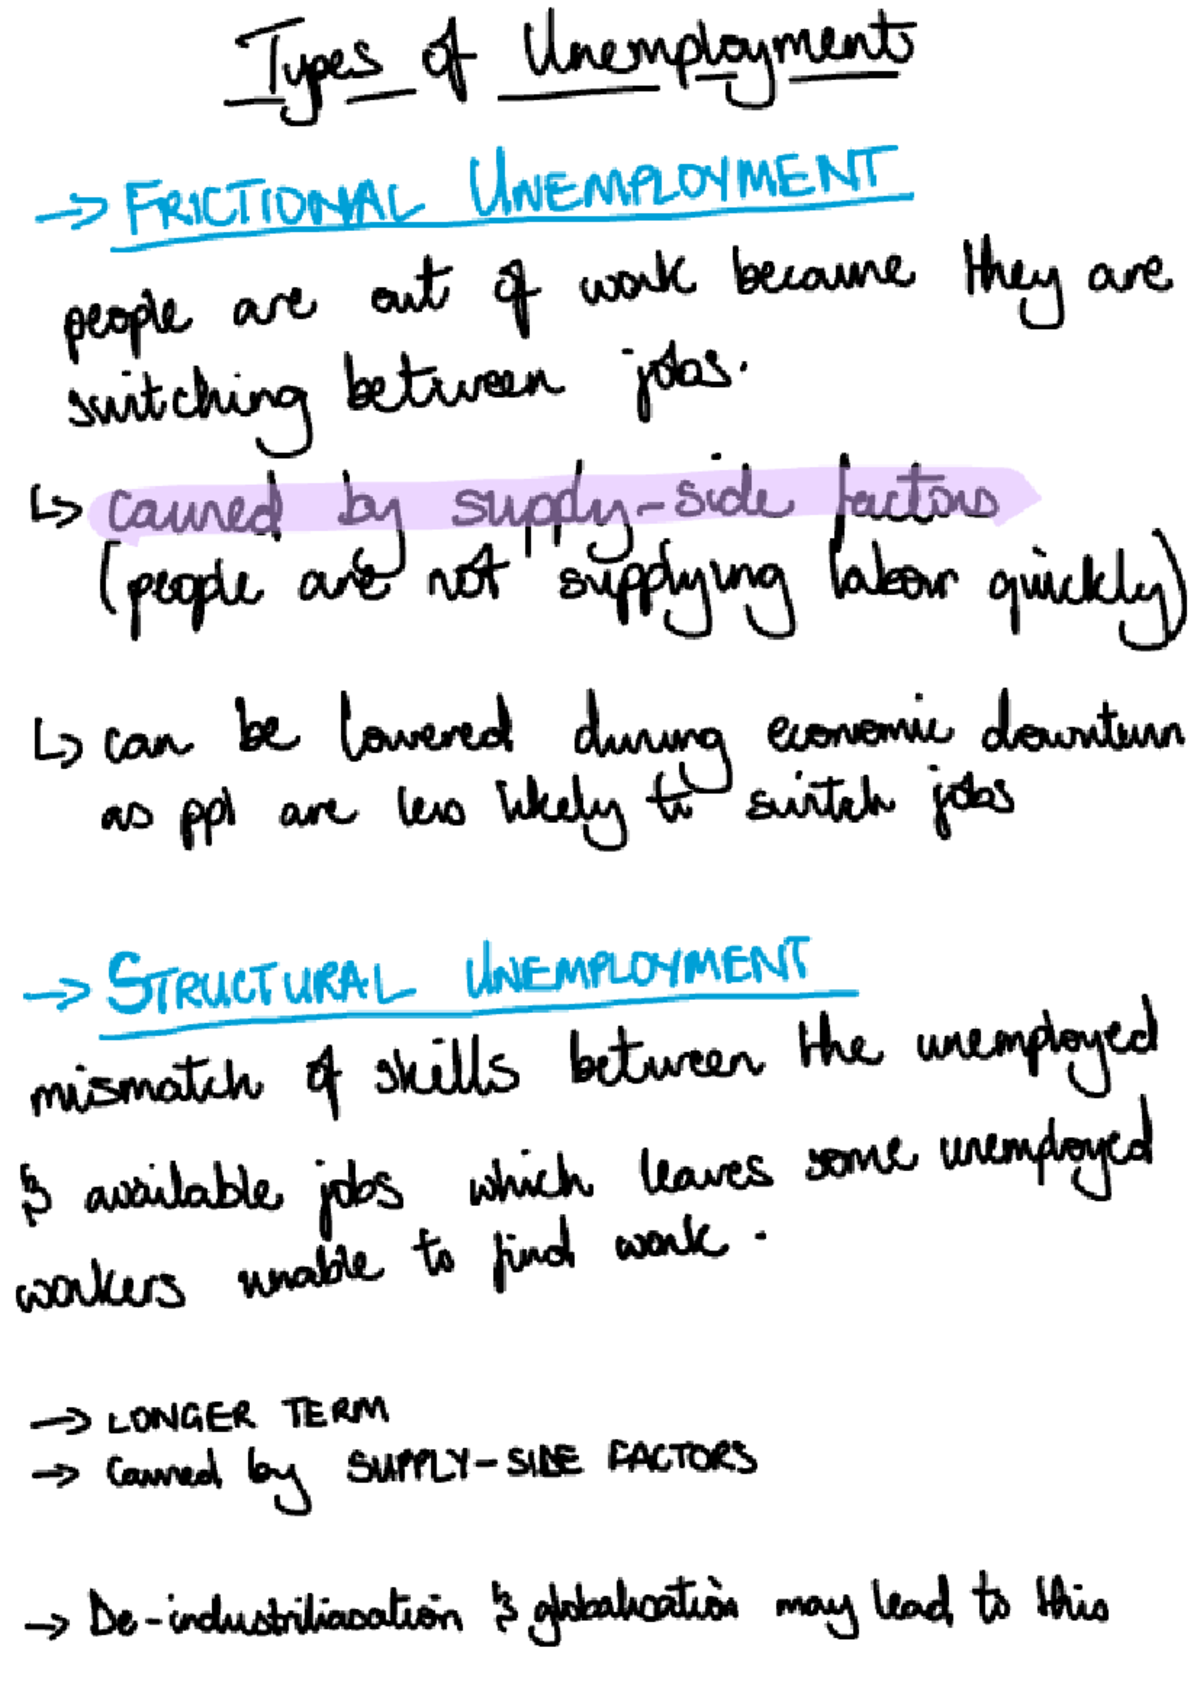 Types of Unemployment
→ FRICTIONAL UNEMPLOYMENT
people are out of work because they are
switching between jobs.
↳ caused by supply-side factors
(people are not supplying labour quickly)
↳ can be lowered during economic downturn
as ppl are less likely to switch jobs
→ STRUCTURAL UNEMPLOYMENT
mismatch of skills between the unemployed
& available jobs which leaves some unemployed
workers unable to find work.
→ LONGER TERM
→ Caused by SUPPLY-SIDE FACTORS
→ De-industriliasation & globalisation may lead to this